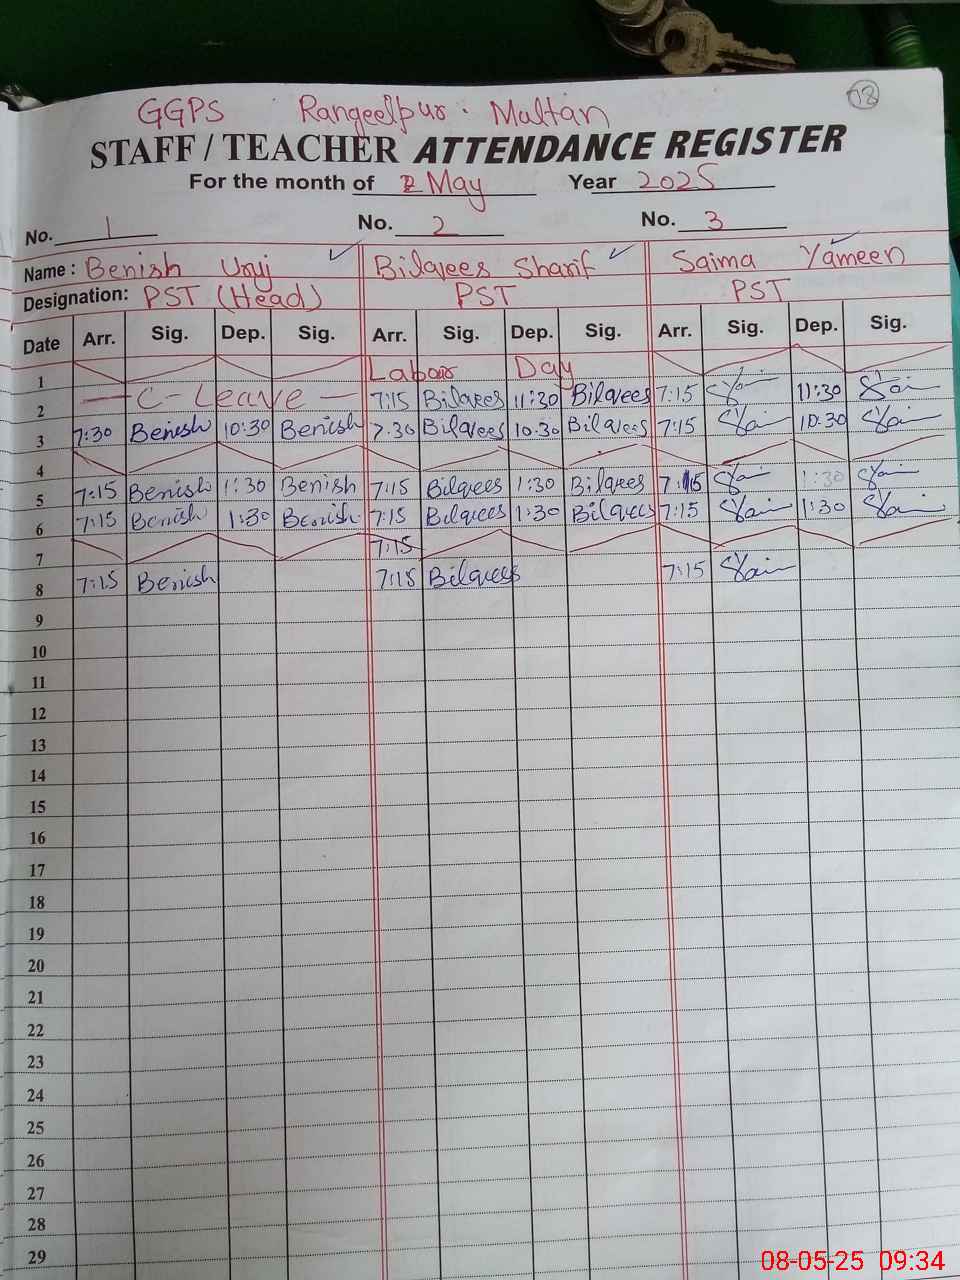 08
GGPS Rangeelpur . Multan
STAFF / TEACHER ATTENDANCE REGISTER
For the month of May Year 2025
No. 1 No. 2 No. 3
Name : Benish Uruj Bilqees Sharif Saima Yameen
Designation: PST (Head) PST PST
Date Arr. Sig. Dep. Sig. Arr. Sig. Dep. Sig. Arr. Sig. Dep. Sig.
1 Labour Day
2 C- Leave 7:15 Bilqees 11:30 Bilqees 7:15 11:30
3 7:30 Benish 10:30 Benish 7.30 Bilqees 10.30 Bilqees 7:15 10:30
4
5 7:15 Benish 1:30 Benish 7:15 Bilqees 1:30 Bilqees 7:15 1:30
6 7:15 Benish 1:30 Benish 7:15 Bilqees 1:30 Bilqees 7:15 1:30
7 7:15
8 7:15 Benish 7:15 Bilqees 7:15
9
10
11
12
13
14
15
16
17
18
19
20
21
22
23
24
25
26
27
28
29
08-05-25 09:34